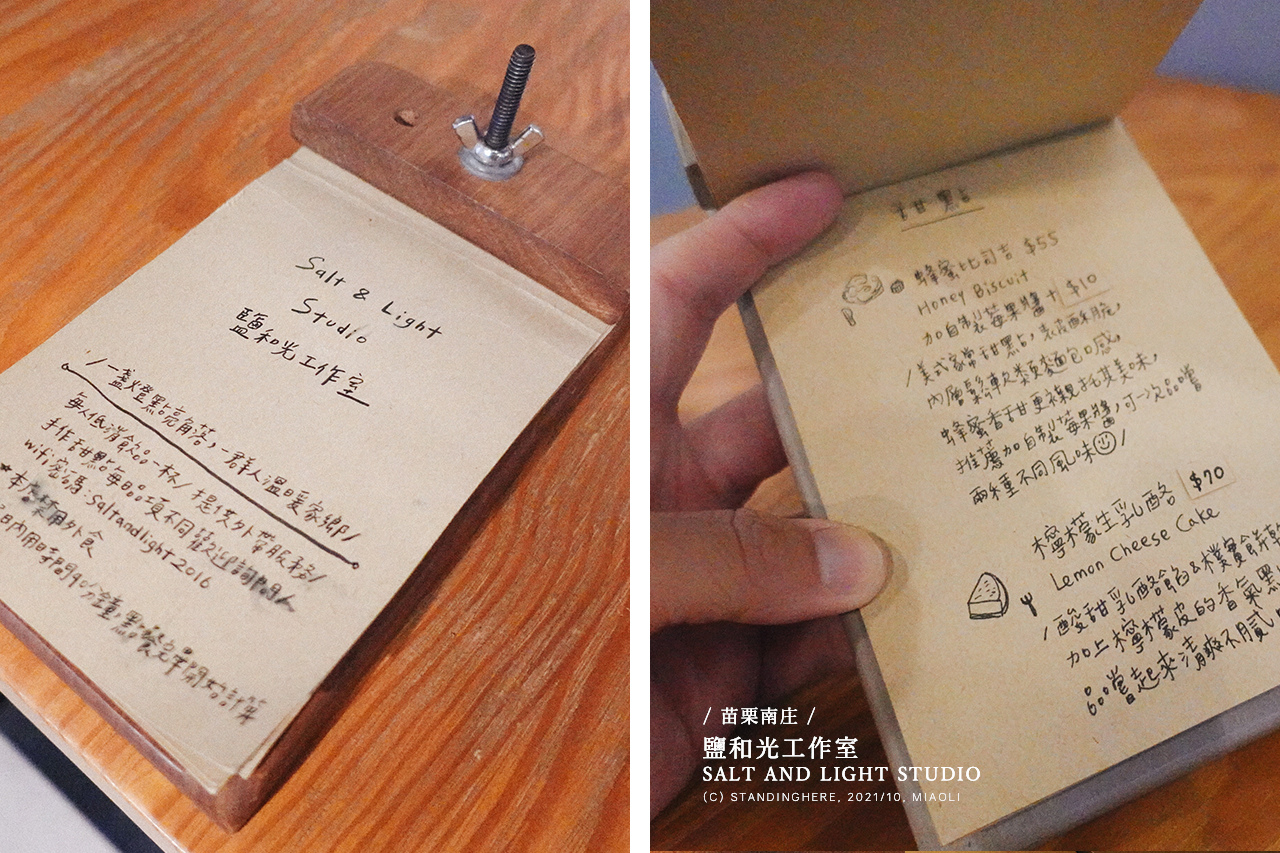 Salt & Light
Studio
鹽和光工作室
/一盞燈點亮角落,一群人溫暖家鄉/
每人低消飲品一杯/提供外帶服務/
手作甜點每日品項不同歡迎詢問
wifi密碼:Saltandlight2016
★本禁用外食
日內用時間90分鐘,點餐完畢開始計算
甜點
蜂蜜比司吉 $55
Honey Biscuit
加自製莓果醬 + $10
/美式家常甜點,表面酥脆,
內層鬆軟類麵包口感,
蜂蜜香甜更襯托其美味,
推薦加自製莓果醬,可一次品嚐
兩種不同風味☺/
檸檬生乳酪 $70
Lemon Cheese Cake
/酸甜乳酪餡&樸實餅乾
加上檸檬皮的香氣點
品嚐起來清爽不膩
/ 苗栗南庄 /
鹽和光工作室
SALT AND LIGHT STUDIO
(C) STANDINGHERE, 2021/10, MIAOLI